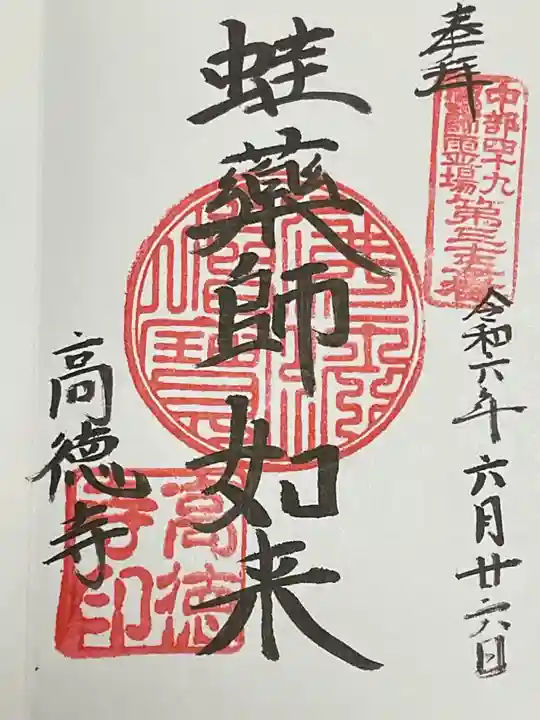 奉拝
中部四十九
薬師霊場第三十六番
令和六年六月廿六日
蛙藥師如来
高徳寺
高徳
寺印